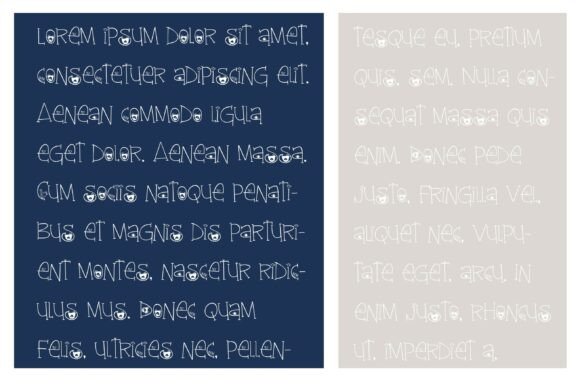 Lorem ipsum dolor sit amet,
consectetuer adipiscing elit.
Aenean commodo ligula
eget dolor. Aenean massa.
Cum sociis natoque penati-
bus et magnis dis parturi-
ent montes, nascetur ridic-
ulus mus. Donec quam
felis, ultricies nec, pellen-
tesque eu, pretium
quis, sem. Nulla con-
sequat massa quis
enim. Donec pede
justo, fringilla vel,
aliquet nec, vulpu-
tate eget, arcu. In
enim justo, rhoncus
ut, imperdiet a,